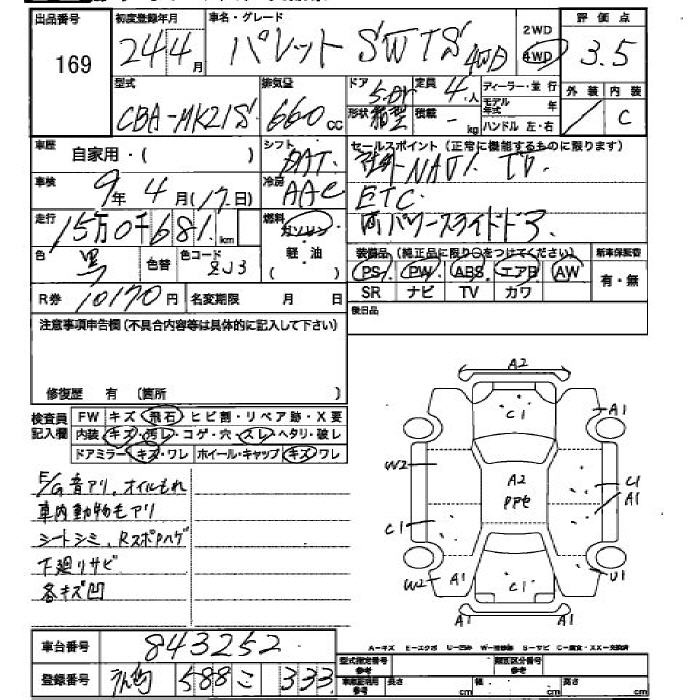 出品番号 初度登録年月 車名・グレード 2WD 4WD 評価点
169 24年 4月 パレット SWTS 4WD 3.5
型式 排気量 ドア 5Dr 定員 4人 ディーラー・並行 外装 内装
CBA-MK21S 660cc 形状 箱型 積載 -kg モデル年式 年 C
ハンドル 左・右
車歴 自家用・( ) シフト DAT セールスポイント(正常に機能するものに限ります)
車検 9年 4月(17日) 冷房 AAC 社外NAVI TV
ETC
走行 15万0千681km 燃料 ガソリン 両パワースライドドア
軽・油
( )
色 黒 色替 色コード ZJ3 装備品(純正品に限り○をつけてください) 新車保証書
PS PW ABS エアB AW 有・無
R券 10170円 名変期限 月 日 SR ナビ TV カワ
後日品
注意事項申告欄(不具合内容等は具体的に記入して下さい)
修復歴 有 (箇所 )
検査員記入欄 FW キズ・飛石・ヒビ割・リペア跡・X要
内装 キズ・汚レ・コゲ・穴・スレ・ヘタリ・破レ
ドアミラー キズ・ワレ ホイール・キャップ キズ・ワレ
E/G音アリ、オイルもれ
車内動物毛アリ
シートシミ、RスポPハゲ
下廻リサビ
各キズ凹
A2
C1
A1
W2 A2 C1
PPE A1
C1
W2 A1 C1 U1
A1 A1
車台番号 843252
登録番号 588 こ 333
A-キズ E-エクボ U-凹み W-補修跡 S-サビ C-腐食・XX-交換済
型式指定番号 類別区分番号
参考 参考
長さ cm 幅 cm 高さ cm